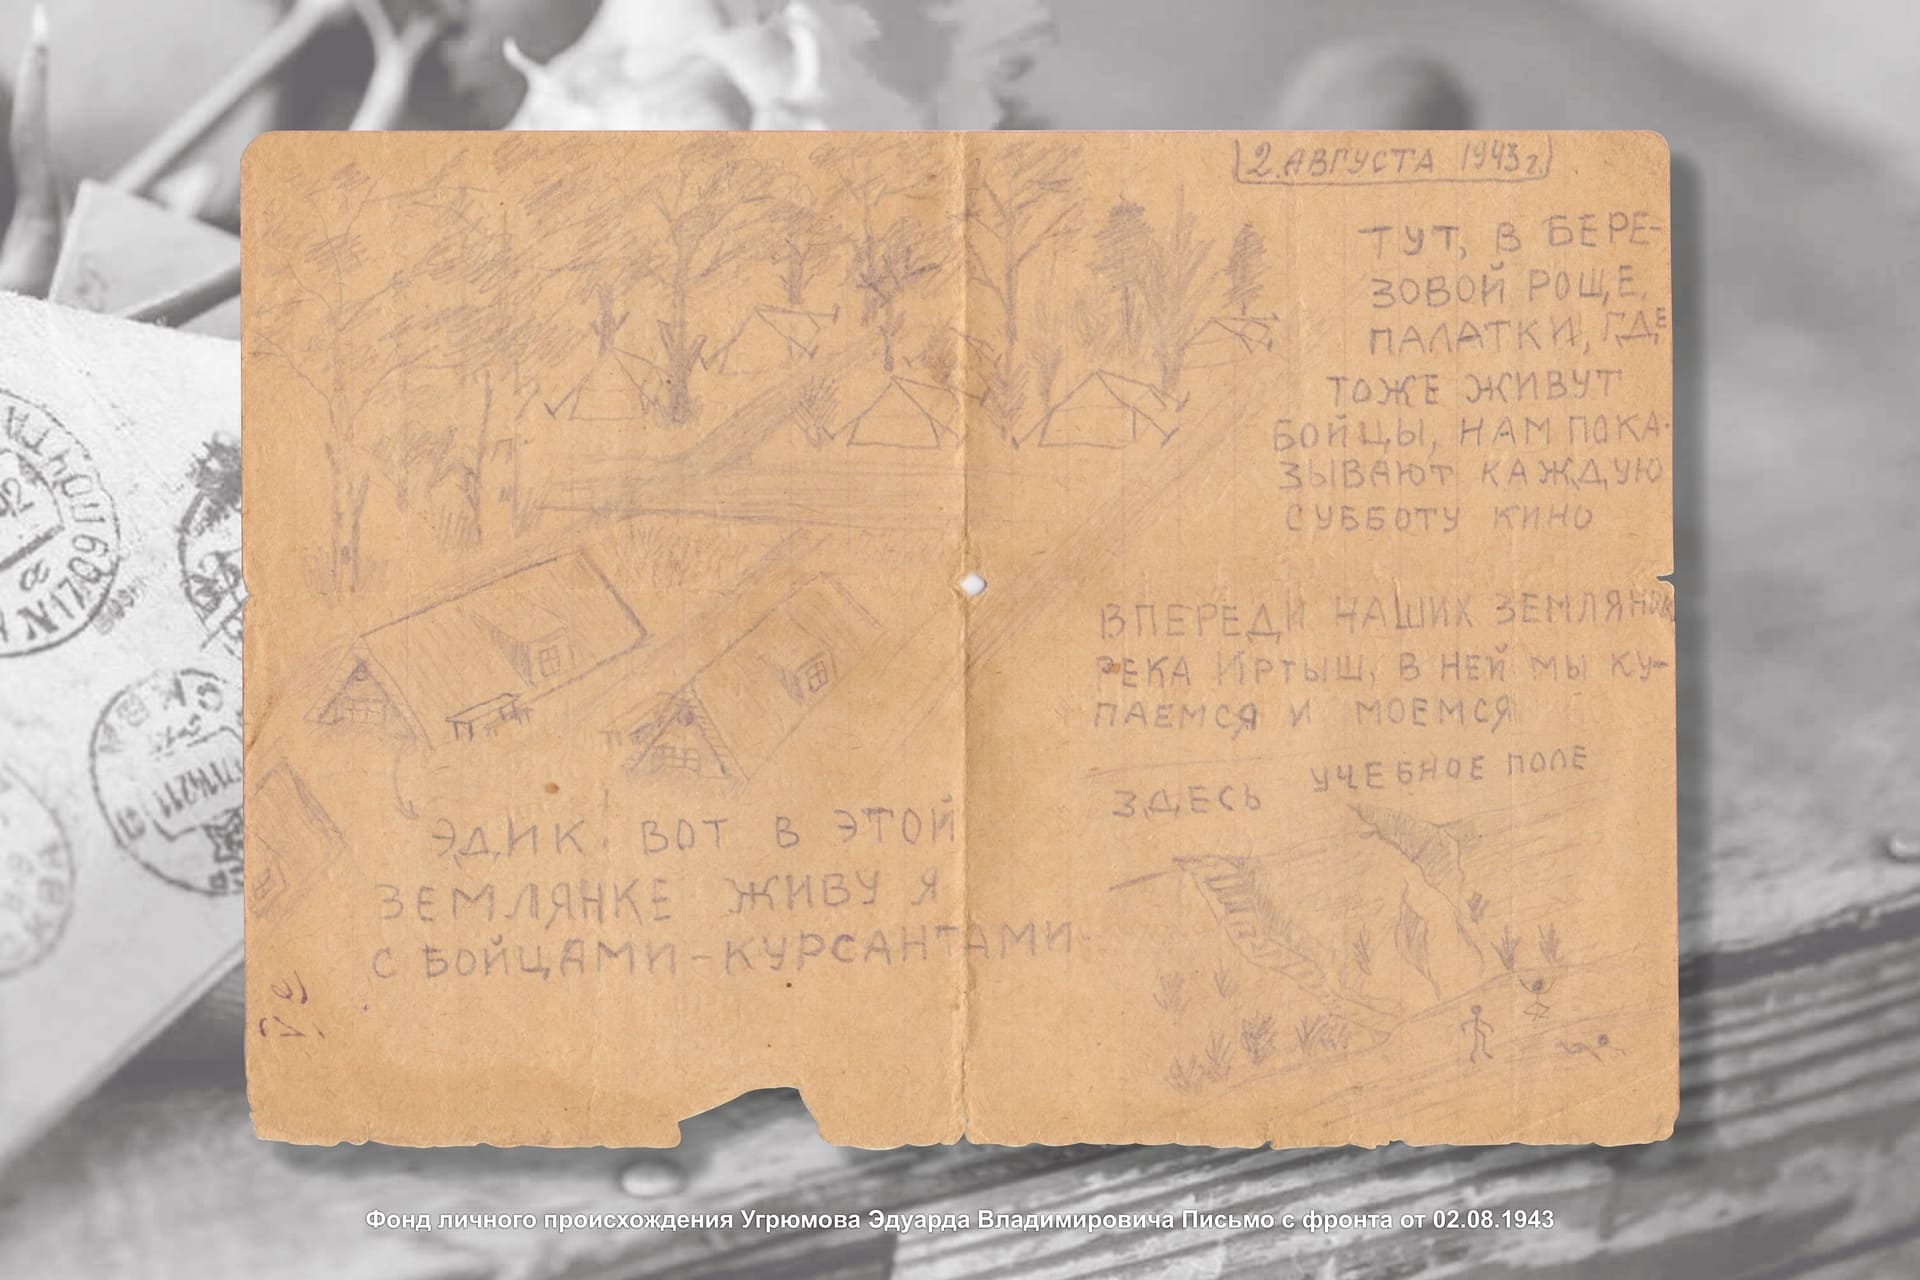 2. АВГУСТА 1943 г.
ТУТ, В БЕРЕ-
ЗОВОЙ РОЩЕ,
ПАЛАТКИ, ГДЕ
ТОЖЕ ЖИВУТ
БОЙЦЫ, НАМ ПОКА-
ЗЫВАЮТ КАЖДУЮ
СУББОТУ КИНО
ВПЕРЕДИ НАШИХ ЗЕМЛЯНОК
РЕКА ИРТЫШ, В НЕЙ МЫ КУ-
ПАЕМСЯ И МОЕМСЯ
ЗДЕСЬ УЧЕБНОЕ ПОЛЕ
ЭДИК! ВОТ В ЭТОЙ
ЗЕМЛЯНКЕ ЖИВУ Я
С БОЙЦАМИ-КУРСАНТАМИ.
Фонд личного происхождения Угрюмова Эдуарда Владимировича Письмо с фронта от 02.08.1943